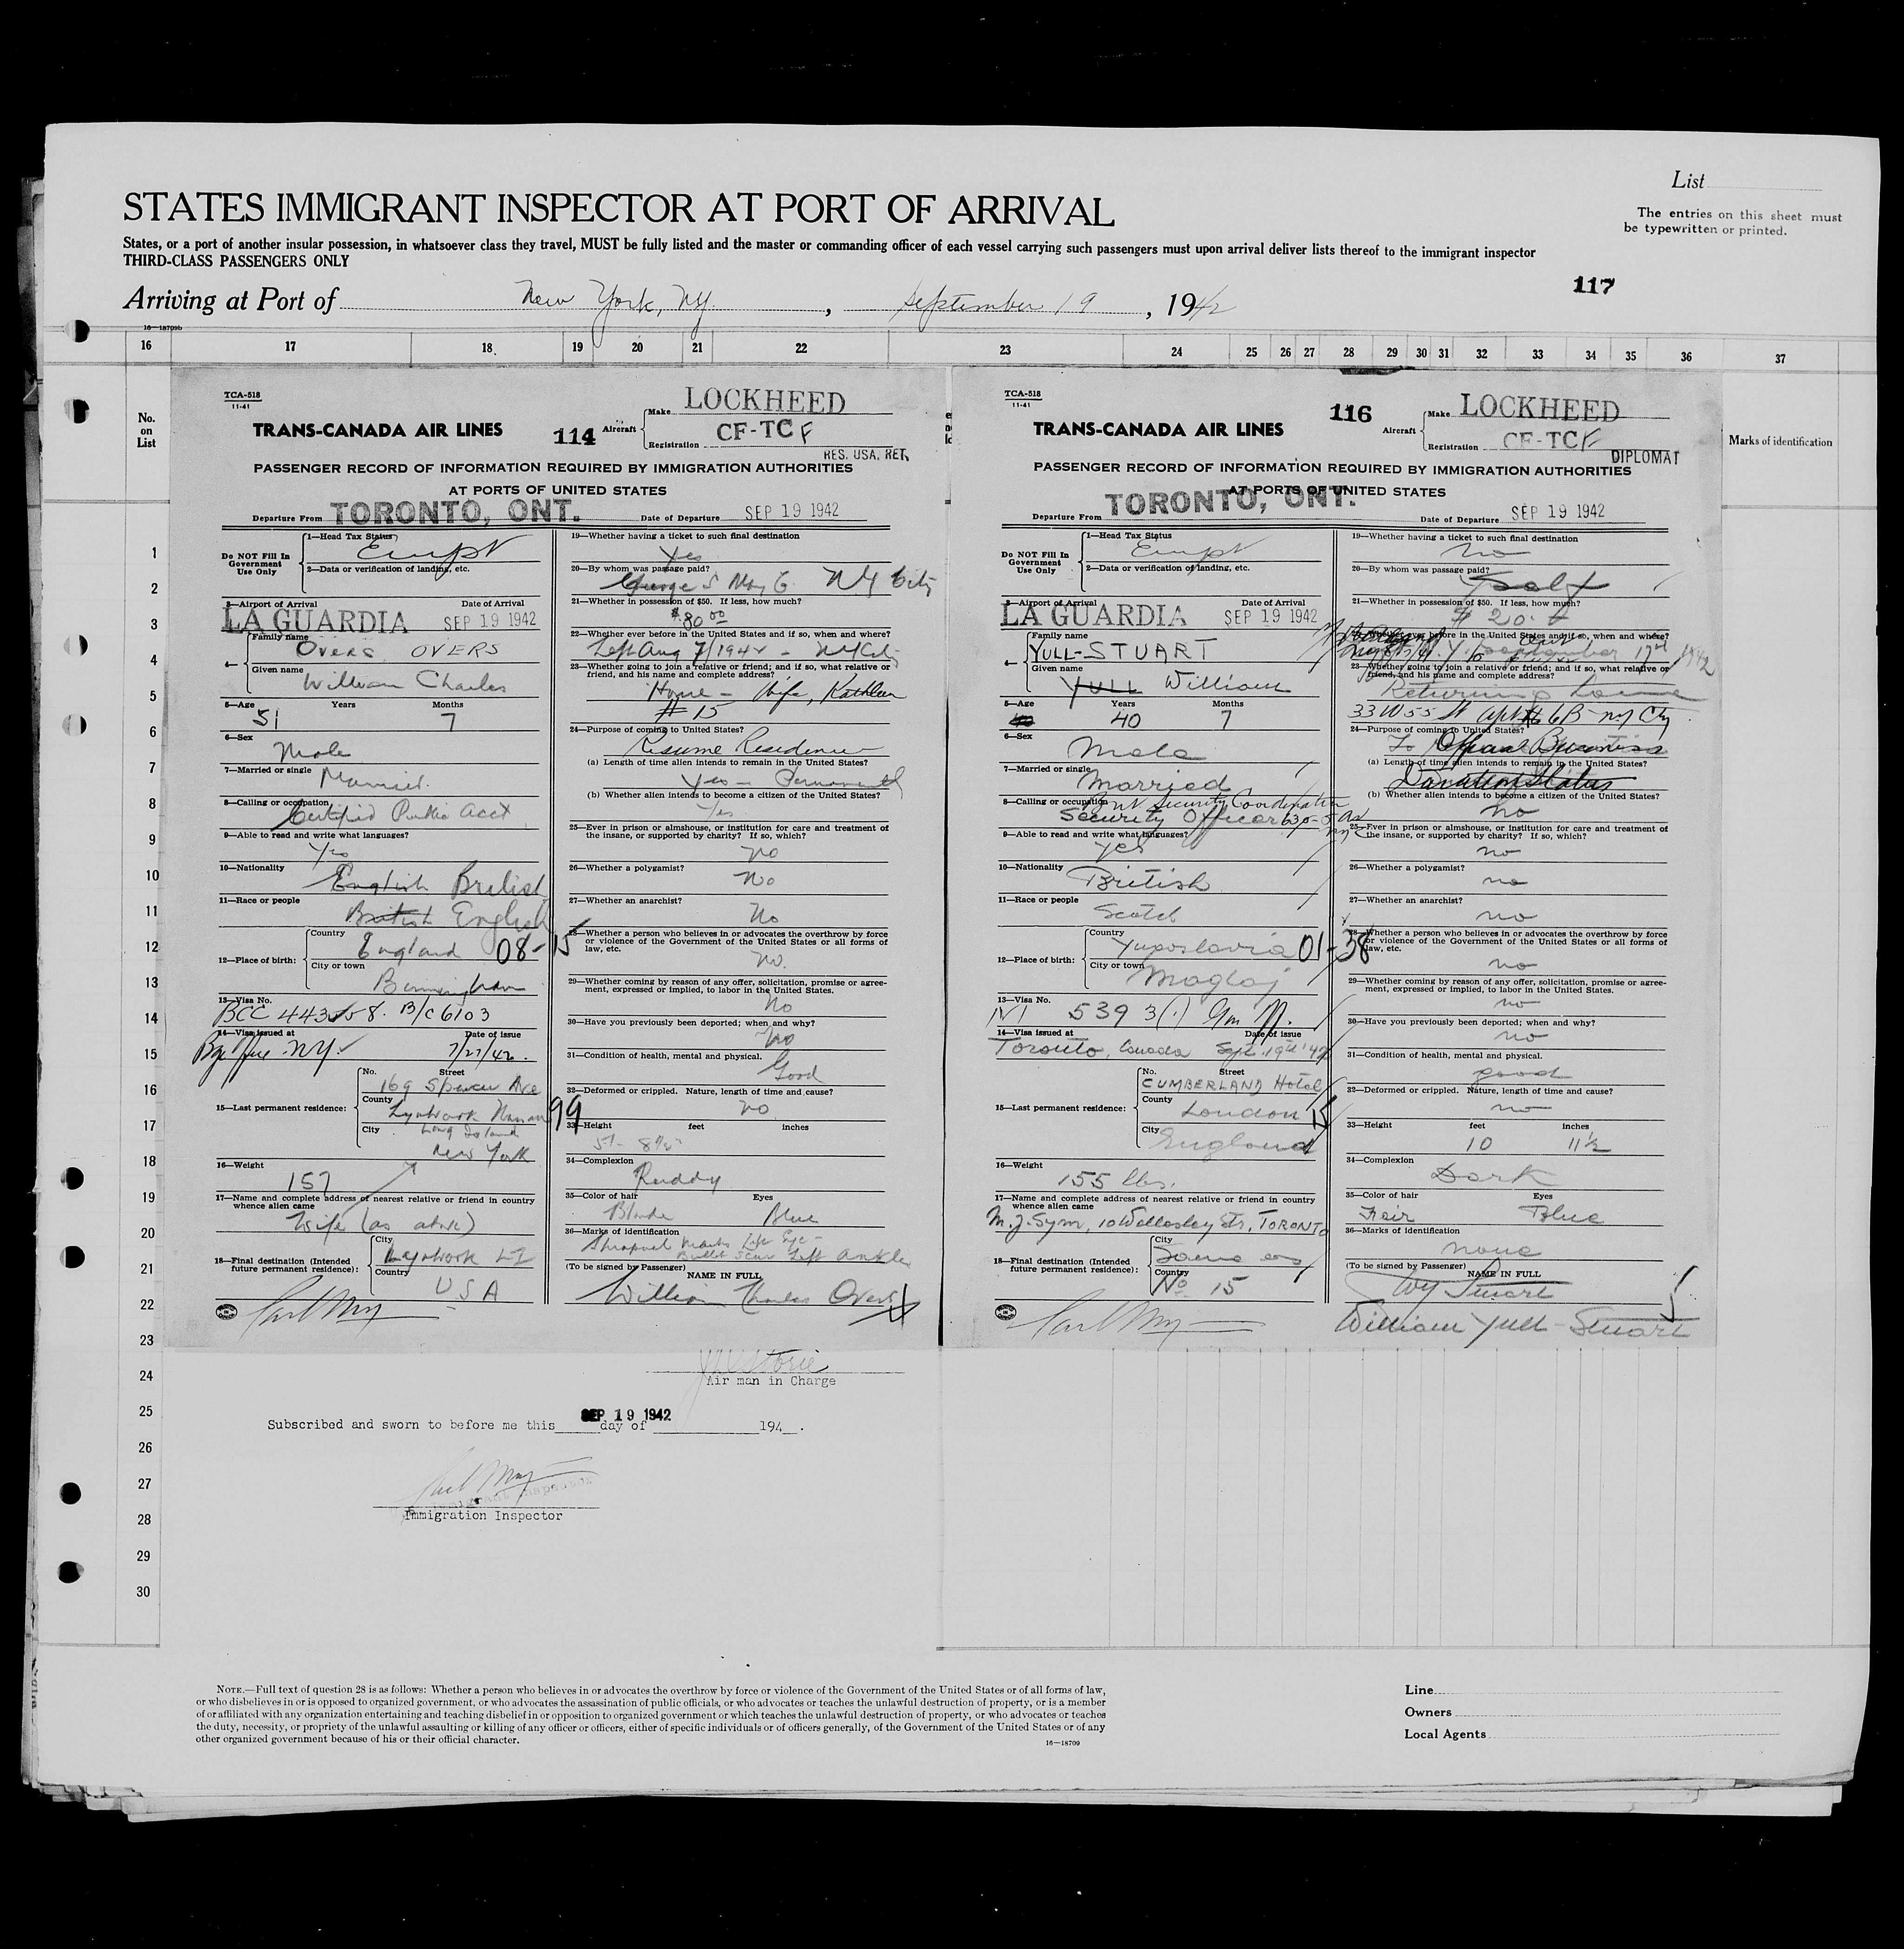 List
STATES IMMIGRANT INSPECTOR AT PORT OF ARRIVAL
The entries on this sheet must
be typewritten or printed.
States, or a port of another insular possession, in whatsoever class they travel, MUST be fully listed and the master or commanding officer of each vessel carrying such passengers must upon arrival deliver lists thereof to the immigrant inspector
THIRD-CLASS PASSENGERS ONLY
117
Arriving at Port of New York, NY. , September 19 , 1942
16—18709b
16 17 18. 19 20 21 22 23 24 25 26 27 28 29 30 31 32 33 34 35 36 37
No.
on
List
Marks of identification
TCA-518
11-41
TRANS-CANADA AIR LINES
114
Aircraft
Make LOCKHEED
Registration CF-TCF
RES. USA. RET.
PASSENGER RECORD OF INFORMATION REQUIRED BY IMMIGRATION AUTHORITIES
AT PORTS OF UNITED STATES
Departure From TORONTO, ONT. Date of Departure SEP 19 1942
Do NOT Fill In
Government
Use Only
1—Head Tax Status
2—Data or verification of landing, etc.
3—Airport of Arrival Date of Arrival
LA GUARDIA SEP 19 1942
4—
Family name
Overs OVERS
Given name
William Charles
5—Age Years Months
51 7
6—Sex
Male
7—Married or single Married
8—Calling or occupation
Certified Public Acct
9—Able to read and write what languages?
Yes
10—Nationality
English British
11—Race or people
British English
12—Place of birth:
Country
England 08-15
City or town
Birmingham
13—Visa No.
B/C 6103
14—Visa issued at Date of issue
NY. 7/27/42.
15—Last permanent residence:
No. Street
169 Spencer Ave
County
Lynbrook 99
City Long Island
New York
16—Weight
157
17—Name and complete address of nearest relative or friend in country
whence alien came
Wife (as above)
18—Final destination (Intended
future permanent residence):
City
Lynbrook LI
Country
USA
19—Whether having a ticket to such final destination
Yes
20—By whom was passage paid?
George S May Co NY City
21—Whether in possession of $50. If less, how much?
$80 00
22—Whether ever before in the United States and if so, when and where?
Left Aug 7/1942 - NY City
23—Whether going to join a relative or friend; and if so, what relative or
friend, and his name and complete address?
Home - Wife, Kathleen
# 15
24—Purpose of coming to United States?
Resume Residence
(a) Length of time alien intends to remain in the United States?
Yes - Permanently
(b) Whether alien intends to become a citizen of the United States?
Yes
25—Ever in prison or almshouse, or institution for care and treatment of
the insane, or supported by charity? If so, which?
No
26—Whether a polygamist?
No
27—Whether an anarchist?
No
28—Whether a person who believes in or advocates the overthrow by force
or violence of the Government of the United States or all forms of
law, etc.
No.
29—Whether coming by reason of any offer, solicitation, promise or agree-
ment, expressed or implied, to labor in the United States.
No
30—Have you previously been deported; when and why?
No
31—Condition of health, mental and physical.
Good
32—Deformed or crippled. Nature, length of time and cause?
No
33—Height feet inches
34—Complexion
Ruddy
35—Color of hair Eyes
Blonde Blue
36—Marks of identification
Shrapnel Marks Left Eye -
Bullet Scar Left Ankle
(To be signed by Passenger)
NAME IN FULL
William Charles Overs
TCA-518
11-41
TRANS-CANADA AIR LINES
116
Aircraft
Make LOCKHEED
Registration CF-TCF
DIPLOMAT
PASSENGER RECORD OF INFORMATION REQUIRED BY IMMIGRATION AUTHORITIES
AT PORTS OF UNITED STATES
Departure From TORONTO, ONT. Date of Departure SEP 19 1942
Do NOT Fill In
Government
Use Only
1—Head Tax Status
2—Data or verification of landing, etc.
3—Airport of Arrival Date of Arrival
LA GUARDIA SEP 19 1942
4—
Family name
YULL-STUART
Given name
YULL William
5—Age Years Months
40 7
6—Sex
Male
7—Married or single
Married
8—Calling or occupation Brit Security Coordination
Security Officer 630-5 Av
9—Able to read and write what languages?
yes
10—Nationality
British
11—Race or people
Scotch
12—Place of birth:
Country
Yugoslavia 01-38
City or town
Maglaj
13—Visa No.
539 3(1)
14—Visa issued at Date of issue
Toronto, Canada Sept. 19th '42
15—Last permanent residence:
No. Street
CUMBERLAND Hotel
County
London 15
City
England
16—Weight
155 lbs.
17—Name and complete address of nearest relative or friend in country
whence alien came
M. J. Sym, 10 Wellesley Str, TORONTO
18—Final destination (Intended
future permanent residence):
City
Same as
Country
No 15
19—Whether having a ticket to such final destination
no
20—By whom was passage paid?
Self
21—Whether in possession of $50. If less, how much?
$ 20.
22—Whether ever before in the United States and if so, when and where?
September 17th 1942
23—Whether going to join a relative or friend; and if so, what relative or
friend, and his name and complete address?
Returning home
33 W 55 St apt 6B NY City
24—Purpose of coming to United States?
Official Business
(a) Length of time alien intends to remain in the United States?
Duration Status
(b) Whether alien intends to become a citizen of the United States?
No
25—Ever in prison or almshouse, or institution for care and treatment of
the insane, or supported by charity? If so, which?
no
26—Whether a polygamist?
no
27—Whether an anarchist?
no
28—Whether a person who believes in or advocates the overthrow by force
or violence of the Government of the United States or all forms of
law, etc.
no
29—Whether coming by reason of any offer, solicitation, promise or agree-
ment, expressed or implied, to labor in the United States.
no
30—Have you previously been deported; when and why?
no
31—Condition of health, mental and physical.
good
32—Deformed or crippled. Nature, length of time and cause?
no
33—Height feet inches
10 11½
34—Complexion
Dark
35—Color of hair Eyes
Fair Blue
36—Marks of identification
none
(To be signed by Passenger)
NAME IN FULL
WY Stuart
William Yull-Stuart
1
2
3
4
5
6
7
8
9
10
11
12
13
14
15
16
17
18
19
20
21
22
23
24
25
26
27
28
29
30
Air man in Charge
Subscribed and sworn to before me this SEP 19 1942 day of 194 .
Immigrant Inspector
Immigration Inspector
NOTE.—Full text of question 28 is as follows: Whether a person who believes in or advocates the overthrow by force or violence of the Government of the United States or of all forms of law,
or who disbelieves in or is opposed to organized government, or who advocates the assassination of public officials, or who advocates or teaches the unlawful destruction of property, or is a member
of or affiliated with any organization entertaining and teaching disbelief in or opposition to organized government or which teaches the unlawful destruction of property, or who advocates or teaches
the duty, necessity, or propriety of the unlawful assaulting or killing of any officer or officers, either of specific individuals or of officers generally, of the Government of the United States or of any
other organized government because of his or their official character.
16—18709
Line
Owners
Local Agents